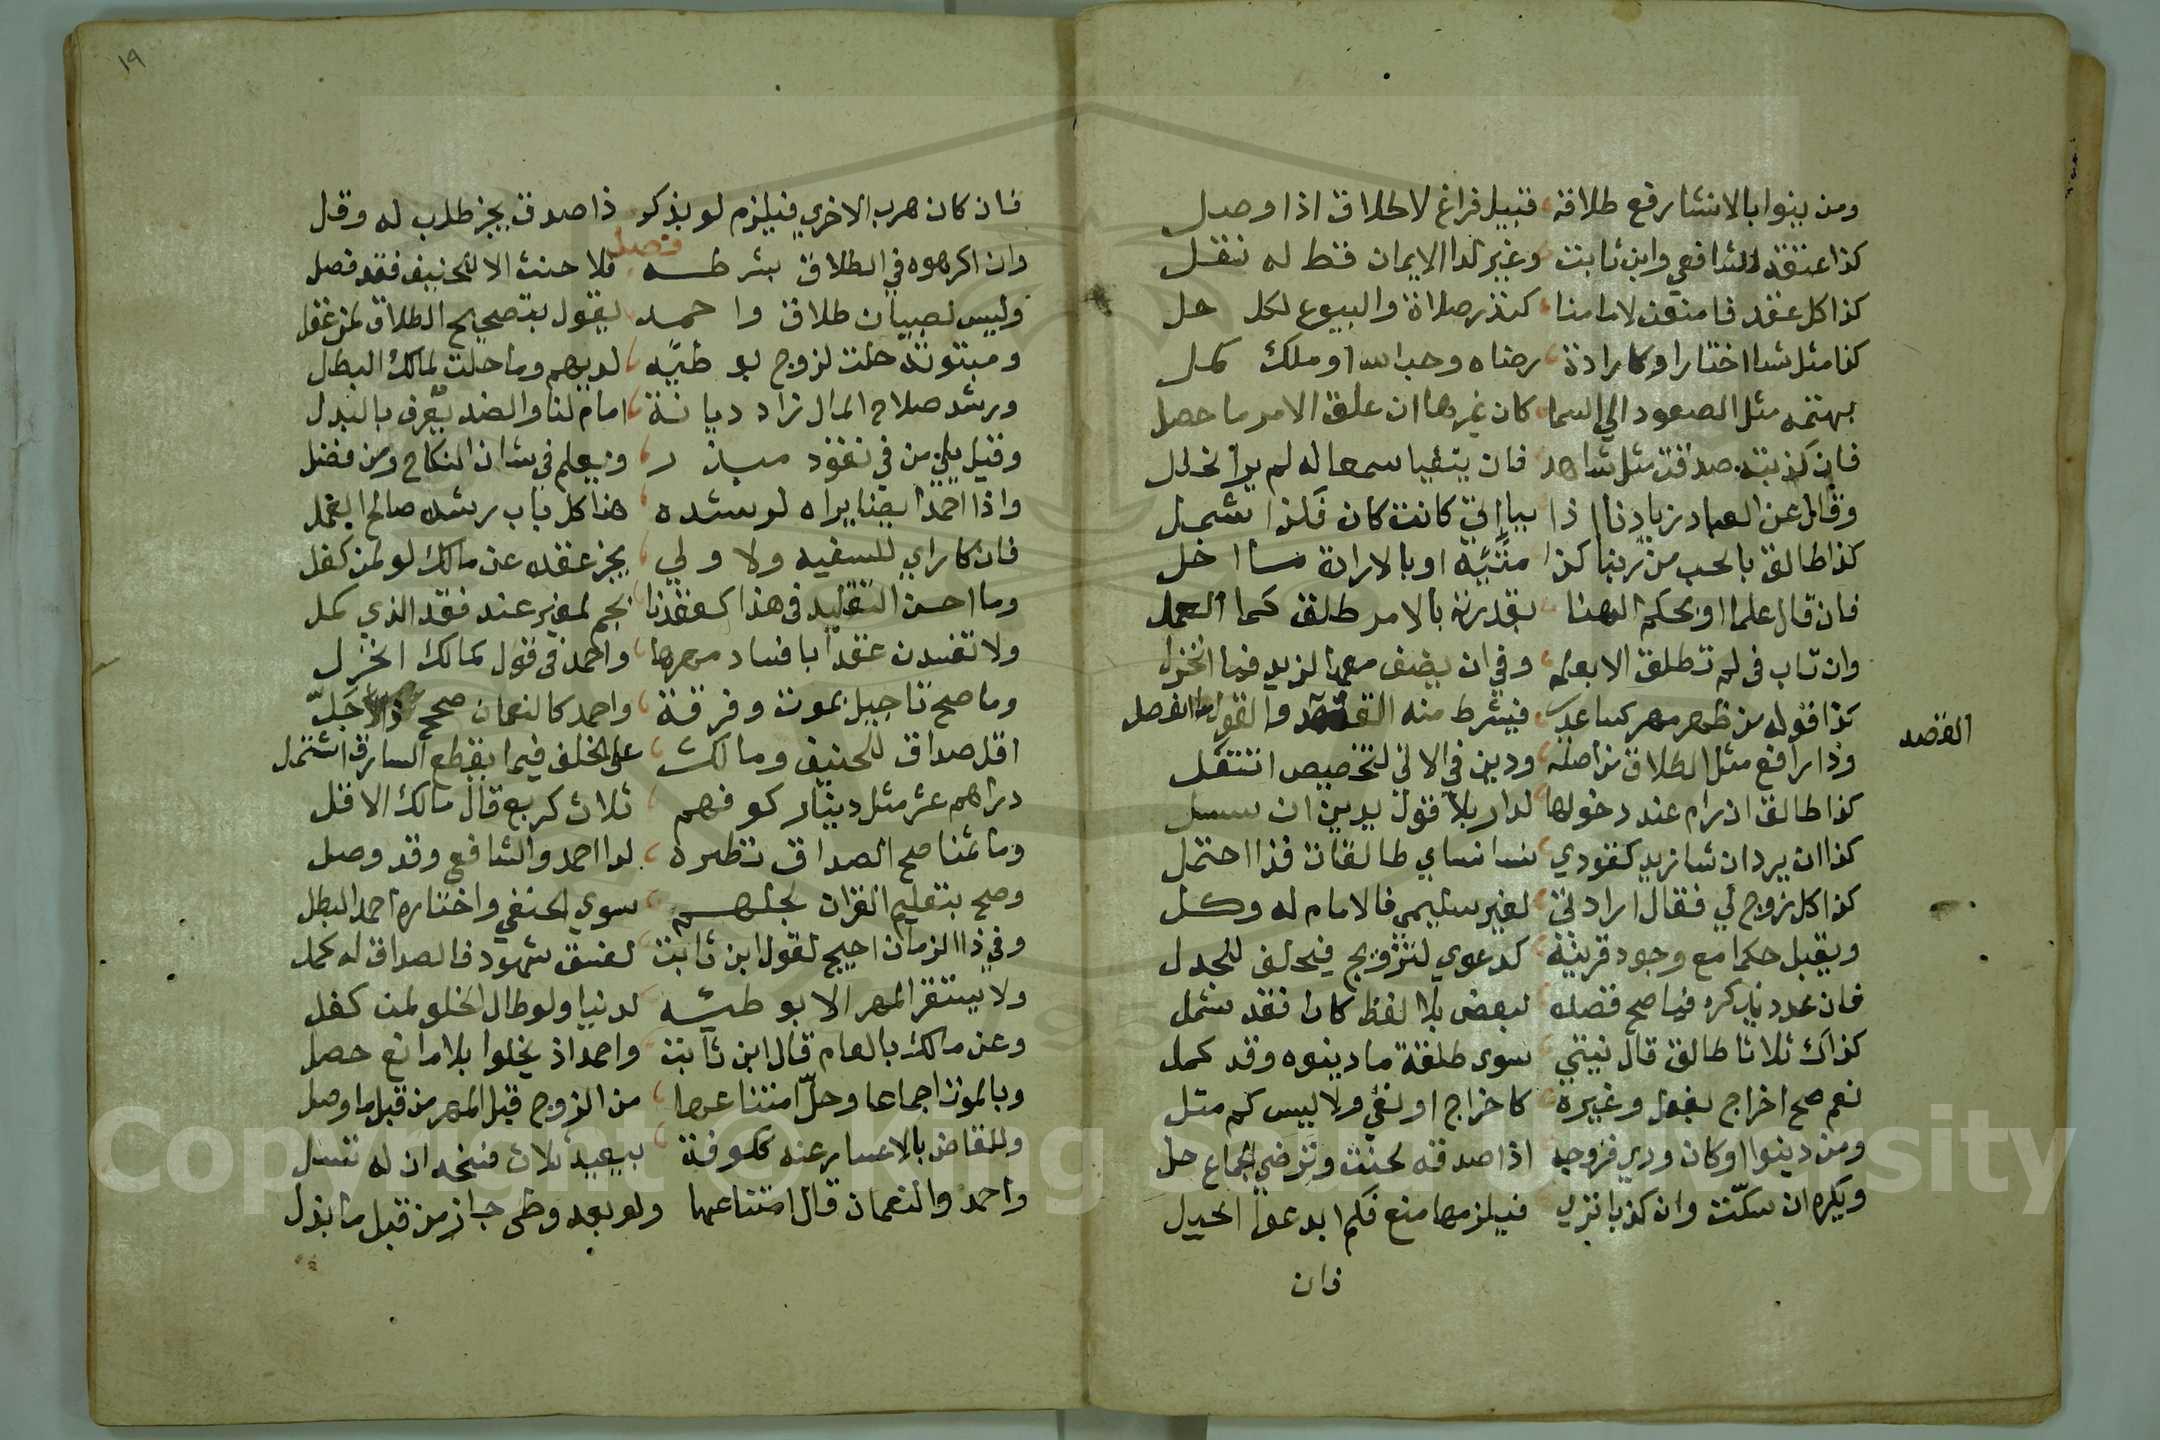 ومن ينوا بالانشا رفع طلاقة قبيل فراغ لا طلاق اذا وصل
كذا عتقه للشافعي وابن ثابت وغير لدا الايمان فقط له نقل
كذا كل عقد فامنعن لامامنا كنذر صلاة والبيوع لكل حل
كنا مثل شا اختار او كارادة رضاه وحب او ملك كمل
مثل الصعود الي السما كان غيرها ان علق الامر ما حصل
فان كذبته صدقت مثل شاهد فان ينفيا سمعا له لم ير الخلل
وقائل عن العباد زيادنا اذا بيا اتي كانت كان شمل
كذا طالق بالحب من ربنا كذا او بالارادة
فان قال علما او بحكم الهنا بقدرته بالامر طلق كما العمل
وان تاب في له تطلق الا بعلمه وفي ان يضف مهرا لزيد فما انخزل
كذا قوله من ظهر مهر كساعد فيشرط منه القصد والقول ما انفصل
القصد
وذا رافع مثل الطلاق من اصله ودين في الاني لتخصيص انتقل
كذا طالق ان رام عند دخولها لدار بلا قول يدين ان سيل
كذا ان يرد ان شا زيد كقودي نسا نساي طالقات فذا احتمل
كذا كل زوج لي فقال ارادتي لغير سليمي فالامام له وكل
ويقبل حكما مع وجود قرينة كدعوي لتزويج فيحلف للجدل
فان عدد يذكره فيا صح قصده لبعض بلا لفظ كان فقد شمل
كذاك ثلاثا طالق قال نيتي سوي طلقة ما دينوه وقد كمل
نعم صح اخراج بفعل وغيره كاخراج او نفي ولا ليس كم مثل
ومن دينوا او كان وري فزوجه اذا صدقه لحنت وترضي الجماع حل
ويكره ان سكتت وان كذبا تري فيلزمها منع فكم ابدعوا الحيل
فان
١٩
فان كان هرب الاخري فيلزم لو يذكر ذا صدق يجز طلب له وقل
فصل
وان اكرهوه في الطلاق بشرطه فلا حنث الا للحنيف فقد فصل
وليس لصبيان طلاق واحمد يقول بتصحيح الطلاق لمن عقل
ومبتوتة حلت لزوج بوطيه لديهم وما حلت لمالك البطل
ورشد صلاح المال زاد ديانة امام لنا والضد يعرف بالبدل
وقيل يلي من في نفوذ مبذر ويعلم في شان النكاح ومن فضل
واذا احمد ايضا يراه لرشده هنا كل باب رشده صالح العمل
فان كا راي للسفيه ولا ولي يجز عقده عن مالك لو لمن كفل
وما احسن التقليد في هذا كعقدنا بحم لمغير عند فقد الذي كمل
ولا تفسدن عقدا بافساد مهرها واحمد في قول كمالك انخزل
وما صح تاجيل بموت وفرقة واحمد كالنعمان صحح ذا الاجل
اقل صداق للحنيف ومالك علي الخلف فيما يقطع السارق اشتمل
دراهم عشر مثل دينار كوفهم ثلاث كربع قال مالك الاقل
وما ثمنا صح الصداق نظيره لدا احمد والشافعي وقد وصل
وصح بتعليم القران لجلهم سوي الحنفي واختاره احمد البطل
وفي ذا الزمان احيج لقول ابن ثابت لفسق شهود فالصداق له كمل
ولا يستقر المهر الا بوطئه لدنيا ولو طال الخلو لمن كفل
وعن مالك بالعام قال ابن ثابت واحمد اذ يخلوا بلا مانع حصل
وبالموت اجماعا وحل امتناعها من الزوج قبل المهر من قبل ما وصل
وللقاض بالاعسار عنه ككوفة ببعيد ثلاث فسخه ان له تسل
واحمد والنعمان قال امتناعها ولو بعد وطي جاز من قبل ما بذل
Copyright © King Saud University